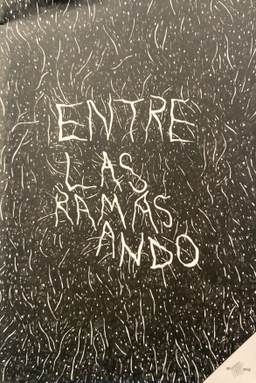 ENTRE
LAS
RAMAS
ANDO